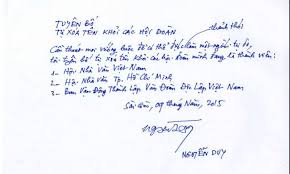 TUYÊN BỐ
TỰ XÓA TÊN KHỎI CÁC HỘI ĐOÀN
thanh thản
Cởi thoát mọi vướng buộc để có thể được làm một người tự do,
tôi tuyên bố tự xóa tên khỏi các hội đoàn mình đang là thành viên:
1 - Hội Nhà Văn Việt-Nam
2 - Hội Nhà Văn Tp. Hồ Chí Minh
3 - Ban Vận Động Thành Lập Văn Đoàn Độc Lập Việt-Nam
Sài Gòn, 09 tháng Năm, 2015
NGUYỄN DUY